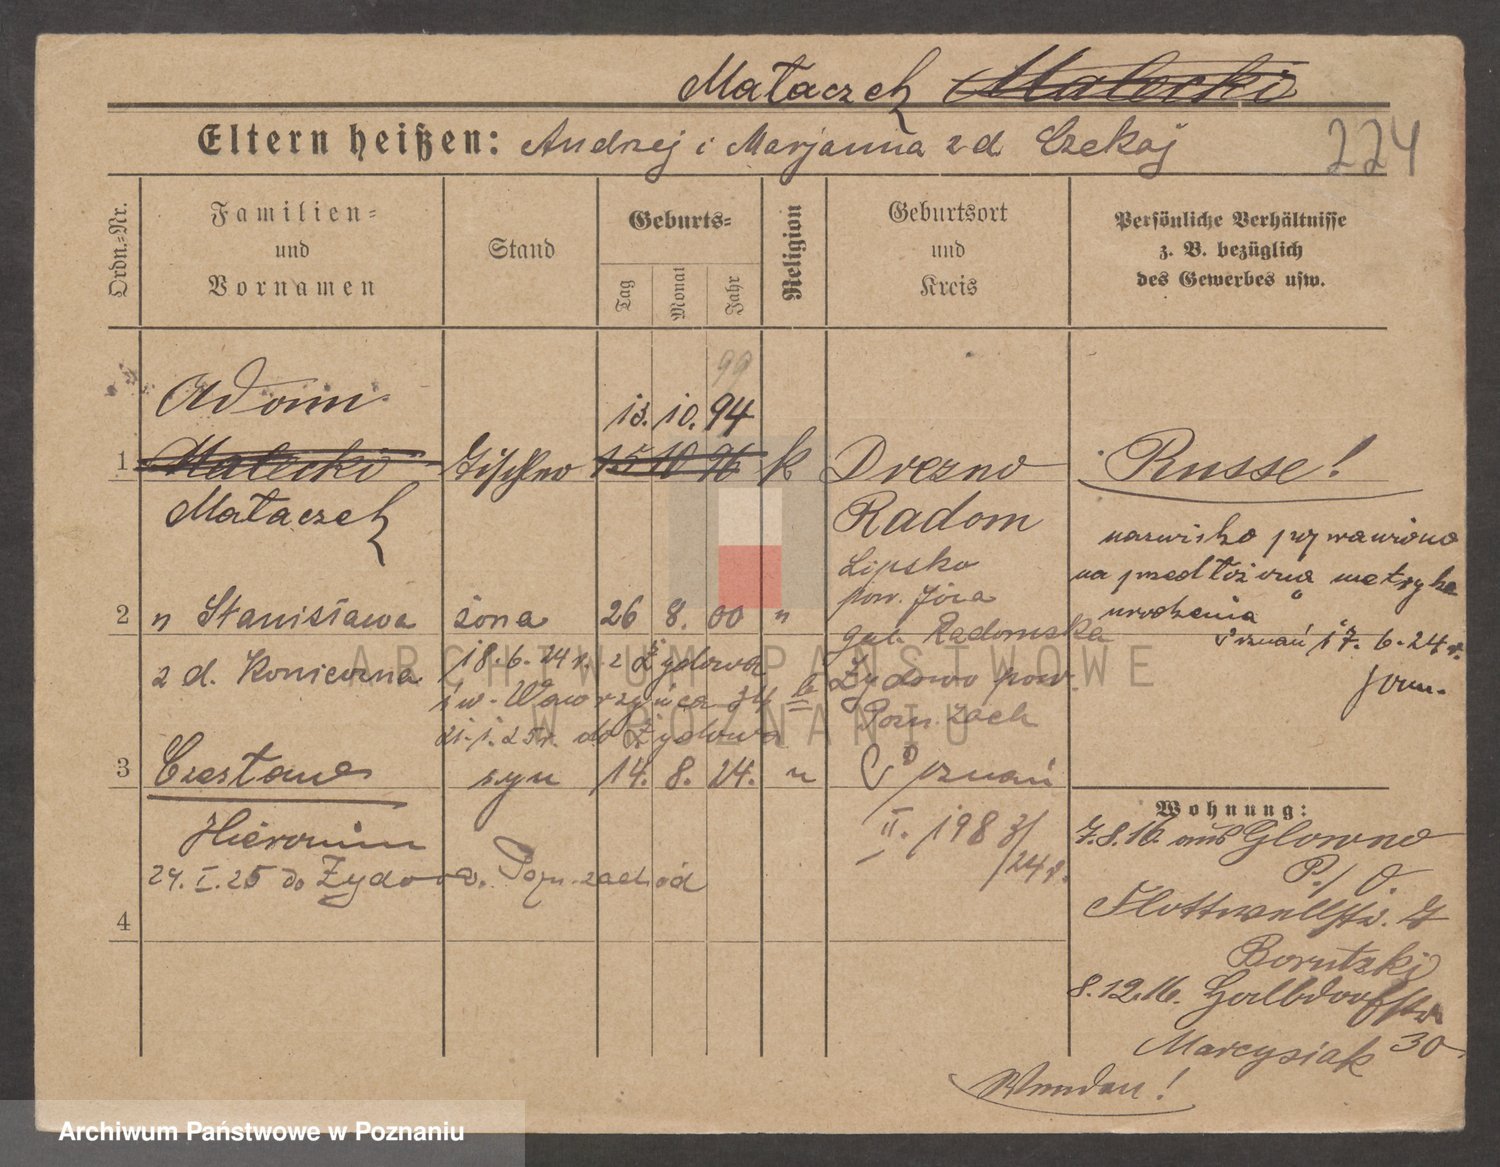 Małaczek Malecki
Eltern heißen: Andrzej i Marjanna z d. Czekaj
224
Ordn.-Nr.
Familien-
und
Vornamen
Stand
Geburts-
Tag
Monat
Jahr
Religion
Geburtsort
und
Kreis
Persönliche Verhältnisse
z. B. bezüglich
des Gewerbes usw.
99
Adam
13. 10. 94
1 Malecki Tischler 15 10 96 k Drezno Russe!
Małaczek Radom
Lipsko
pow.
nazwisko
na przedłożoną metrykę
urodzenia
17. 6. 24 r.
2 " Stanisława żona 26 8. 00 "
gub. Radomska
z d. Konieczna
18. 6. 24 r. z Żydowa
św. Wawrzyńca 34
21. 1. 25 r. do Żydowa
Żydowo pow.
Pozn. zach
3 Czesław syn 14. 8. 24. " Poznań
Hieronim
II. 1983/
/24 r.
24. I. 25 do Żydowa. Pozn. zachód
4
Wohnung:
7. 8. 16. aus Glowno
P./O.
Flottwellstr. 7
Borutzki
8. 12. 16. Halbdorfstr
30
Marcysiak
Wenden!
ARCHIWUM PAŃSTWOWE
W POZNANIU
Archiwum Państwowe w Poznaniu